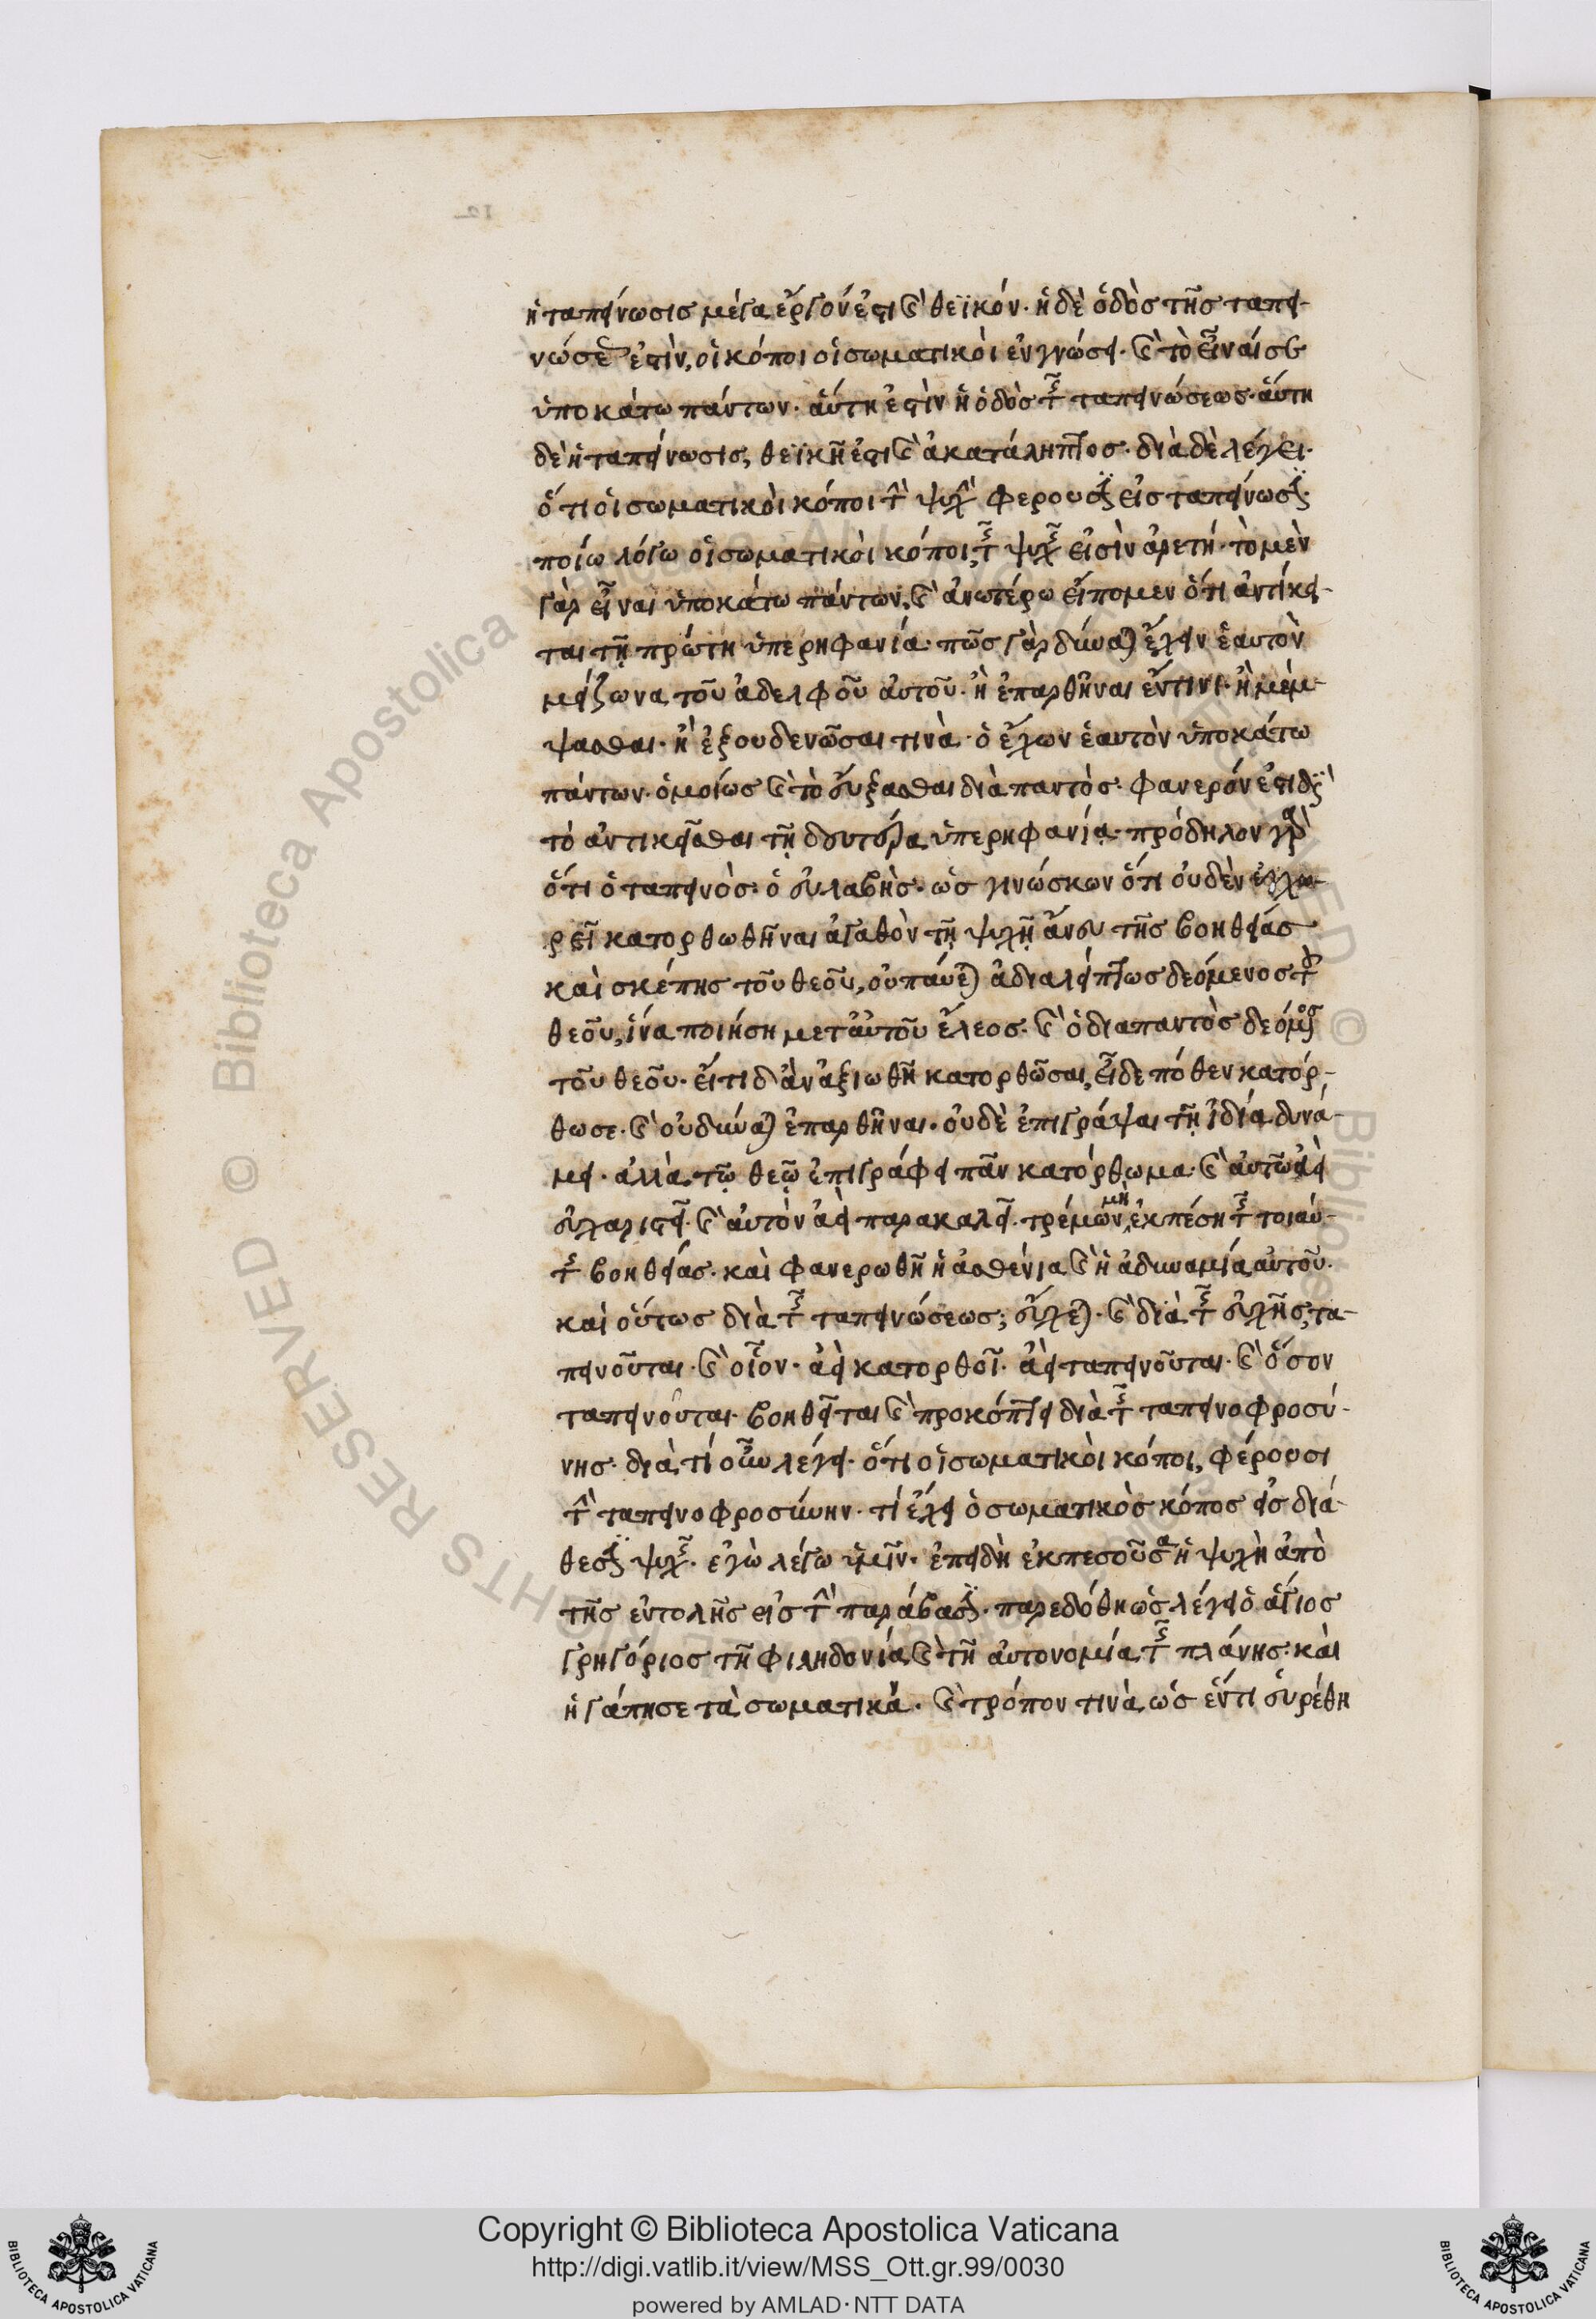 ἡ ταπείνωσις μέγα ἔργον ἐστι καὶ θεϊκόν· ἡ δὲ ὁδὸς τῆς ταπει-
νώσεως ἐστὶν, οἱ κόποι οἱ σωματικοὶ ἐν γνώσει· καὶ τὸ εἶναί σε
ὑποκάτω πάντων· αὕτη ἐστὶν ἡ ὁδὸς τῆς ταπεινώσεως· αὕτη
δὲ ἡ ταπείνωσις, θεϊκή ἐστι καὶ ἀκατάληπτος· διὰ δὲ λέγει·
ὅτι οἱ σωματικοὶ κόποι τὴν ψυχὴν φέρουσιν εἰς ταπείνωσιν·
ποίω λόγω οἱ σωματικοὶ κόποι, τῆς ψυχῆς εἰσὶν ἀρετή· τὸ μὲν
γὰρ εἶναι ὑποκάτω πάντων, καὶ ἀνωτέρω εἴπομεν ὅτι ἀντίκει-
ται τῇ πρώτη ὑπερηφανία· πῶς γὰρ δύναται ἔχειν ἑαυτὸν
μείζωνα τοῦ ἀδελφοῦ αὐτοῦ· ἢ ἐπαρθῆναι ἔν τινι· ἢ μέμ-
ψασθαι· ἢ ἐξουδενῶσαι τινὰ· ὁ ἔχων ἑαυτὸν ὑποκάτω
πάντων· ὁμοίως καὶ τὸ εὔξασθαι διὰ παντὸς· φανερόν ἐστι δὲ
τὸ ἀντικεῖσθαι τῇ δευτέρα ὑπερηφανίᾳ· πρόδηλον γὰρ
ὅτι ὁ ταπεινὸς· ὁ εὐλαβὴς· ὡς γινώσκων ὅτι οὐδὲν ἐγχω-
ρεῖ κατορθωθῆναι ἀγαθὸν τῇ ψυχῇ ἄνευ τῆς βοηθείας
καὶ σκέπης τοῦ θεοῦ, οὐ παύεται ἀδιαλείπτως δεόμενος τοῦ
θεοῦ, ἵνα ποιήση μετ αὐτοῦ ἔλεος· καὶ ὁ διαπαντὸς δεόμενος
τοῦ θεοῦ· εἴ τι δ ἂν ἀξιωθῆ κατορθῶσαι, εἶδε πόθεν κατόρ-
θωσε· καὶ οὐ δύναται ἐπαρθῆναι· οὐδὲ ἐπιγράψαι τῇ ἰδία δυνά-
μει· ἀλλὰ τῷ θεῷ ἐπιγράφει πᾶν κατόρθωμα· καὶ αὐτῶ ἀεὶ
εὐχαριστεῖ· καὶ αὐτὸν ἀεὶ παρακαλεῖ· τρέμων μὴ ἐκπέση τῆς τοιαύ-
της βοηθείας· καὶ φανερωθῆ ἡ ἀσθένια καὶ ἡ ἀδυναμία αὐτοῦ·
καὶ οὕτως διὰ τῆς ταπεινώσεως, εὔχεται· καὶ διὰ τῆς εὐχῆς, τα-
πεινοῦται· καὶ οἷον· ἀεὶ κατορθοῖ· ἀεὶ ταπεινοῦται· καὶ ὅσον
ταπεινοῦται· βοηθεῖται καὶ προκόπτει διὰ τῆς ταπεινοφροσύ-
νης· διὰ τί οὖν λέγει· ὅτι οἱ σωματικοὶ κόποι, φέρουσι
τὴν ταπεινοφροσύνην· τί ἔχει ὁ σωματικὸς κόπος εἰς διά-
θεσιν ψυχῆς· ἐγὼ λέγω ὑμῖν· ἐπειδὴ ἐκπεσοῦσα ἡ ψυχὴ ἀπὸ
τῆς ἐντολῆς εἰς τὴν παράβασιν· παρεδόθη ὡς λέγει ὁ ἅγιος
γρηγόριος τῆ φιληδονία καὶ τῆ αὐτονομία τῆς πλάνης· καὶ
ἠγάπησε τὰ σωματικὰ· καὶ τρόπον τινὰ ὡς ἕν τι εὑρέθη
Copyright © Biblioteca Apostolica Vaticana
http://digi.vatlib.it/view/MSS_Ott.gr.99/0030
powered by AMLAD·NTT DATA